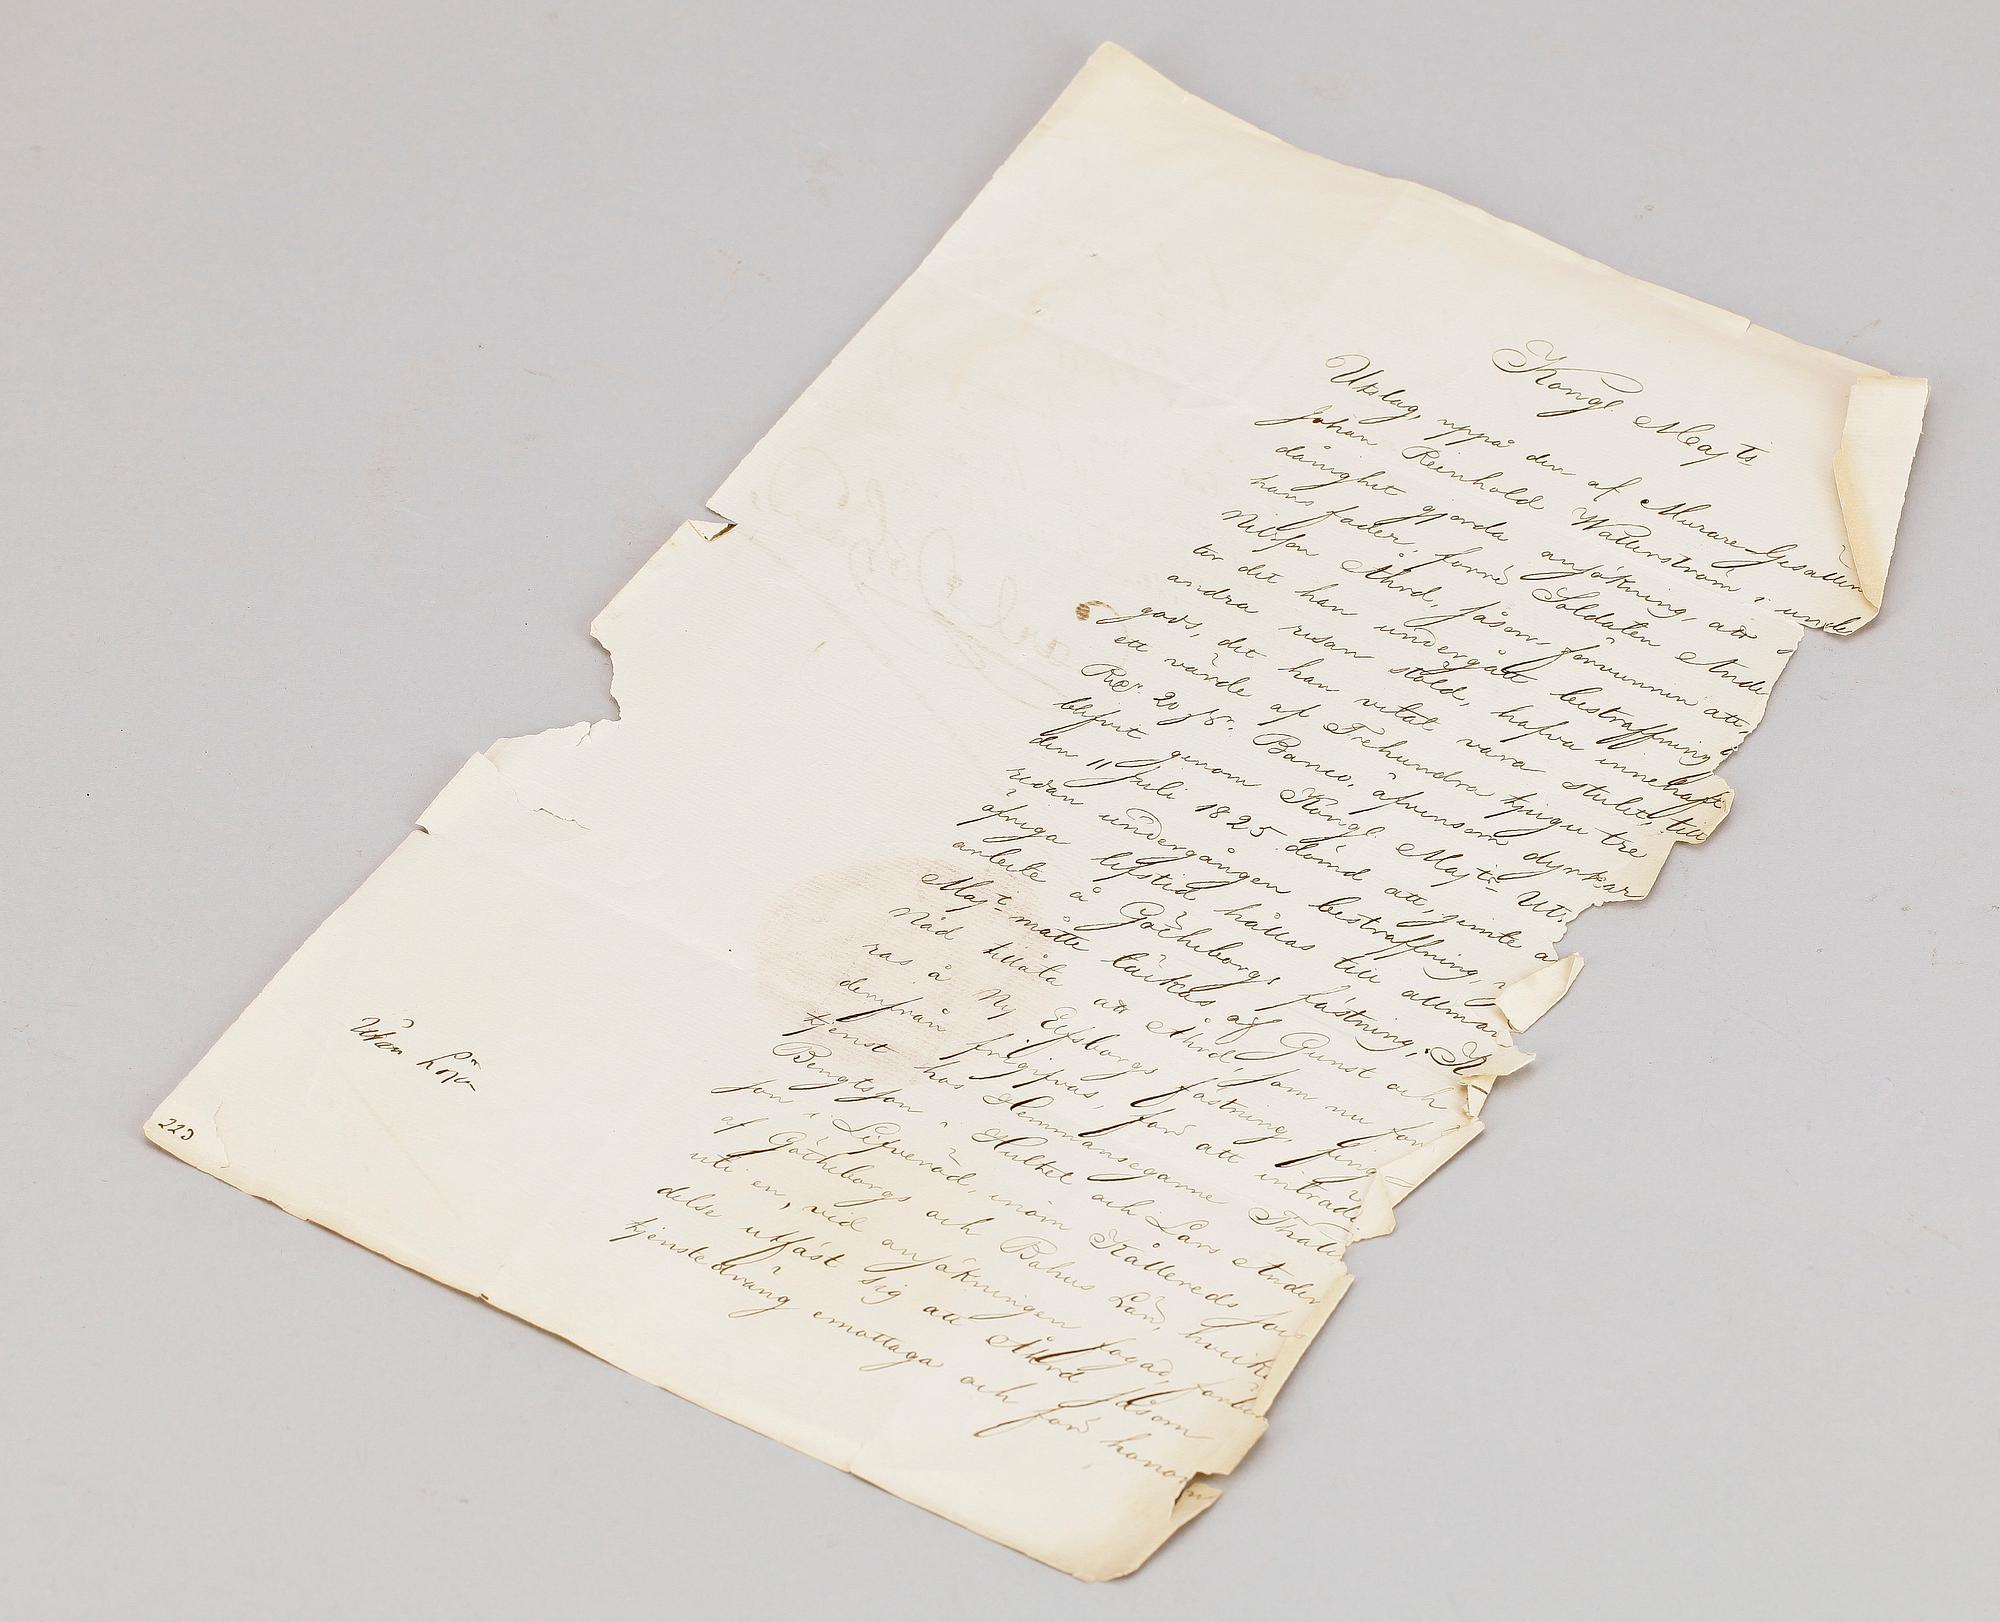 Kongl. Maj:ts
Utslag, uppå den af Murare-Gesällen
Johan Reinhold Wallerström i unde
dånighet gjorda ansökning, att
hans fader, förre Soldaten Ande
Nilsson Åhrd, såsom förvunnen att,
ter det han undergått bestraffning
andra resan stöld, hafva innehaft
gods, det han vetat vara stulet, till
ett värde af Trehundra tjugu tre
Rdr 20 sk. Banco, äfvensom dyrkar
blifvit genom Kongl. Maj:ts Ut
den 11 Juli 1825 dömd att, jemte
redan undergången bestraffning,
öfriga lifstid hållas till allmän
arbete å Götheborgs fästning, K
Maj:t måtte täckas af Gunst och
Nåd tillåta att Åhrd, som nu för
ras å Ny Elfsborgs fästning, fing
derifrån frigifvas, för att inträda
tjenst hos Hemmansegarne
Bengtsson i Hultet och Lars Ander
son i Lifvered, inom Kållereds soc
af Götheborgs och Bohus Län, hvilke
uti en, vid ansökningen fogad, förbin
delse utfäst sig att Åhrd såsom
tjenstedräng emottaga och för honom
Utan Lösen
223